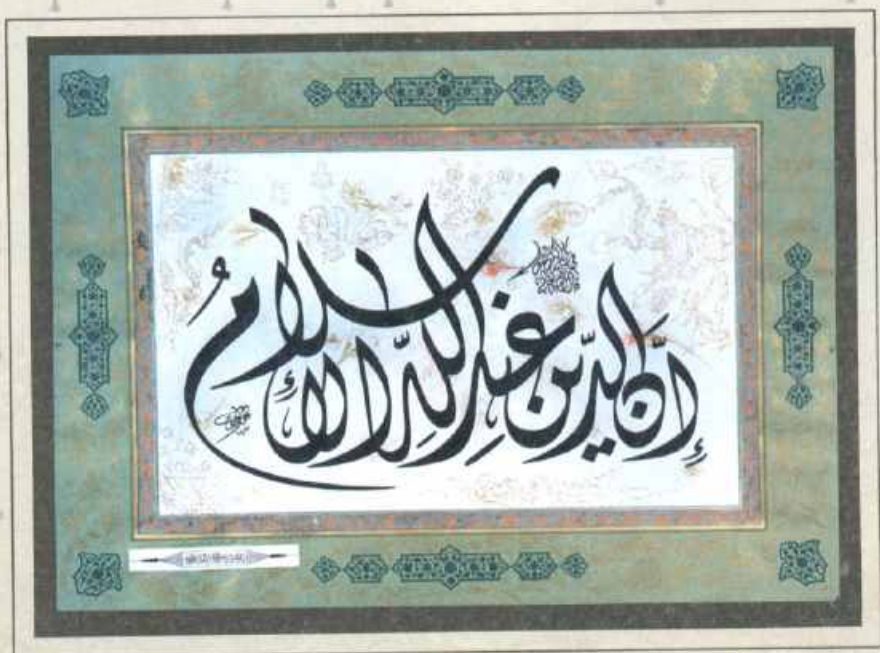 إِنَّ الدِّينَ عِندَ اللَّهِ الإِسلامُ